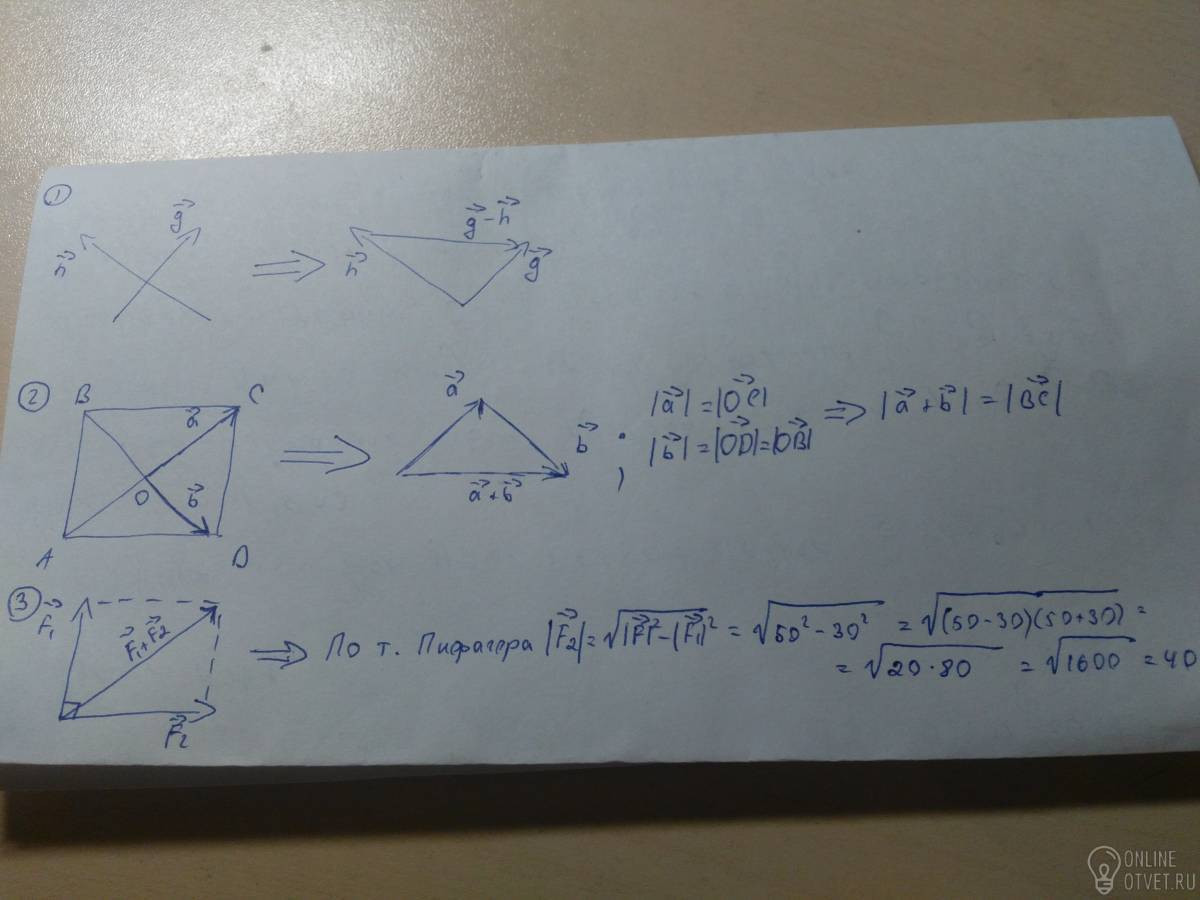 ①
h⃗ g⃗ ⇒ h⃗ g⃗-h⃗ g⃗
②
B C
a⃗
O b⃗
A D
⇒
a⃗
b⃗
a⃗+b⃗
; |a⃗|=|OC⃗|
|b⃗|=|OD⃗|=|OB⃗|
⇒ |a⃗+b⃗|=|BC⃗|
③
F⃗₁
F⃗₁+F⃗2
F⃗₂
⇒ По т. Пифагера |F⃗2|=√|F⃗|²-|F⃗₁|² = √50²-30² = √(50-30)(50+30) =
= √20·80 = √1600 = 40
ONLINE
OTVET.RU